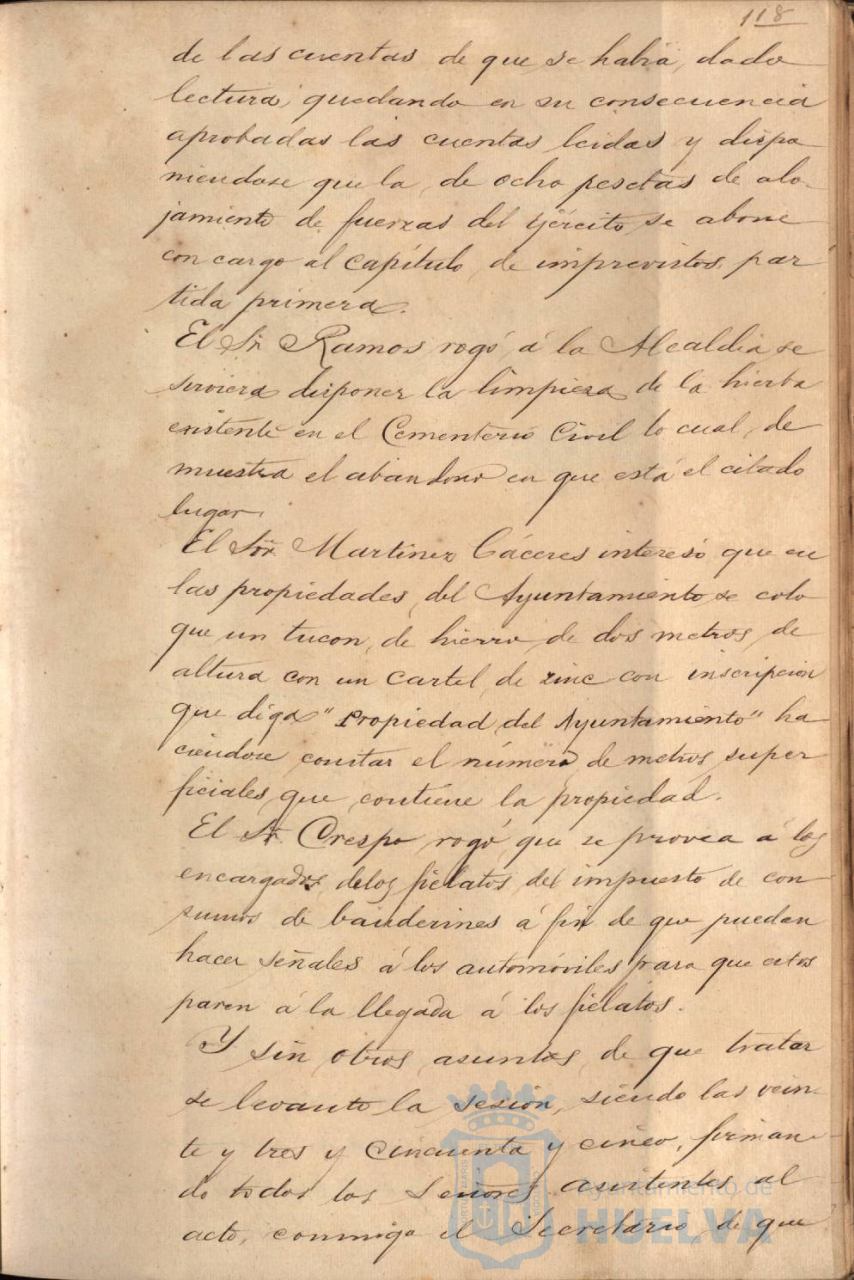 118
de las cuentas de que se había dado
lectura, quedando en su consecuencia
aprobadas las cuentas leidas y dispo-
niendose que la de ocho pesetas de alo-
jamiento de fuerzas del ejército se abone
con cargo al Capítulo de imprevistos, par
tida primera.
El Sr. Ramos rogó á la Alcaldia se
serviera disponer la limpieza de la hierba
existente en el Cementerio Civil lo cual de
muestra el abandono en que está el citado
lugar.
El Sor. Martinez Cáceres interesó que en
las propiedades del Ayuntamiento se colo
que un tucon de hierro de dos metros de
altura con un cartel de zinc con inscripcion
que diga "Propiedad del Ayuntamiento" ha-
ciendose constar el número de metros super
ficiales que contiene la propiedad.
El Sr. Crespo rogó que se provea á los
encargados delos fielatos del impuesto de con
sumos de banderines á fin de que puedan
hacer señales á los automóviles para que estos
paren á la llegada á los fielatos.
Y sin otros asuntos de que tratar
se levanto la sesión, siendo las vein-
te y tres y cincuenta y cinco, firman-
do todos los Señores asistentes al
acto, conmigo el Secretario de que
Ayuntamiento de
HUELVA